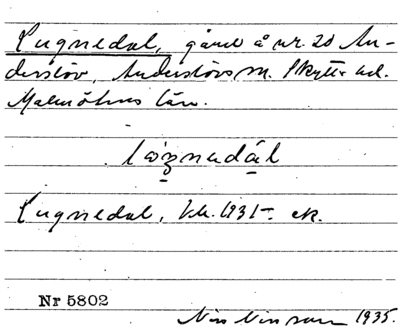 Lugnedal, gård å nr. 20 An-
derslöv, Anderslövs sn. Skytts hd.
Malmöhus län.
Lugnedal, kb. 1931-. ek.
Nr 5802
Nils Nilsson 1935.